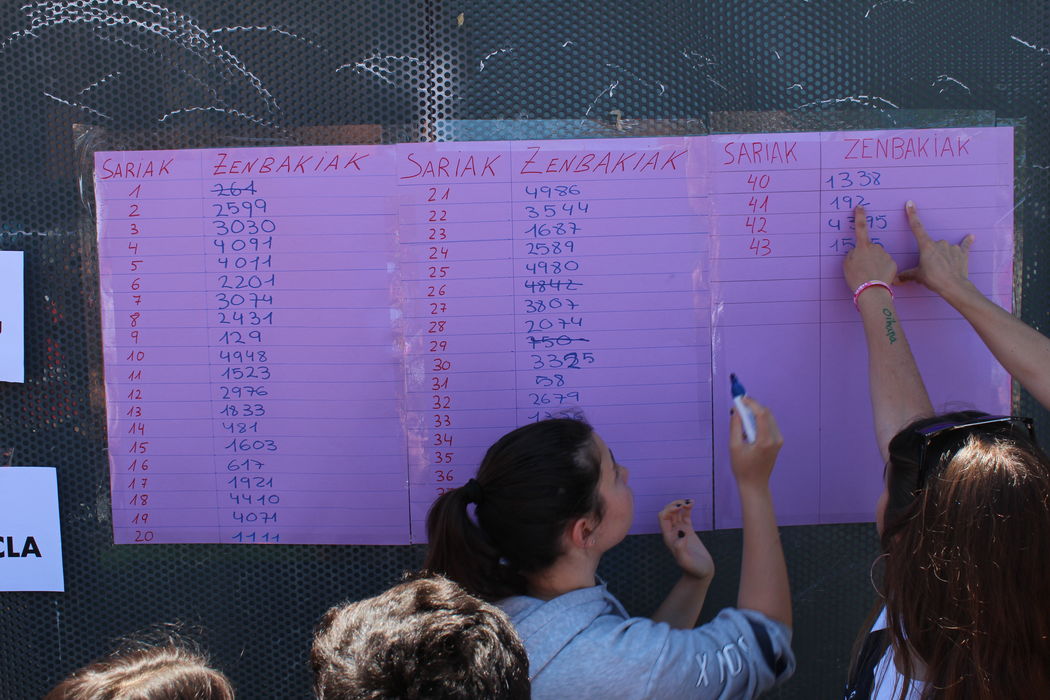 SARIAK ZENBAKIAK
1 264
2 2599
3 3030
4 4091
5 4011
6 2201
7 3074
8 2431
9 129
10 4948
11 1523
12 2976
13 1833
14 481
15 1603
16 617
17 1921
18 4410
19 4071
20 1111
SARIAK ZENBAKIAK
21 4986
22 3544
23 1687
24 2589
25 4980
26 4842
27 3807
28 2074
29 750
30 3325
31 58
32 2679
33
34
35
36
SARIAK ZENBAKIAK
40 1338
41 192
42
43
oihana
CLA